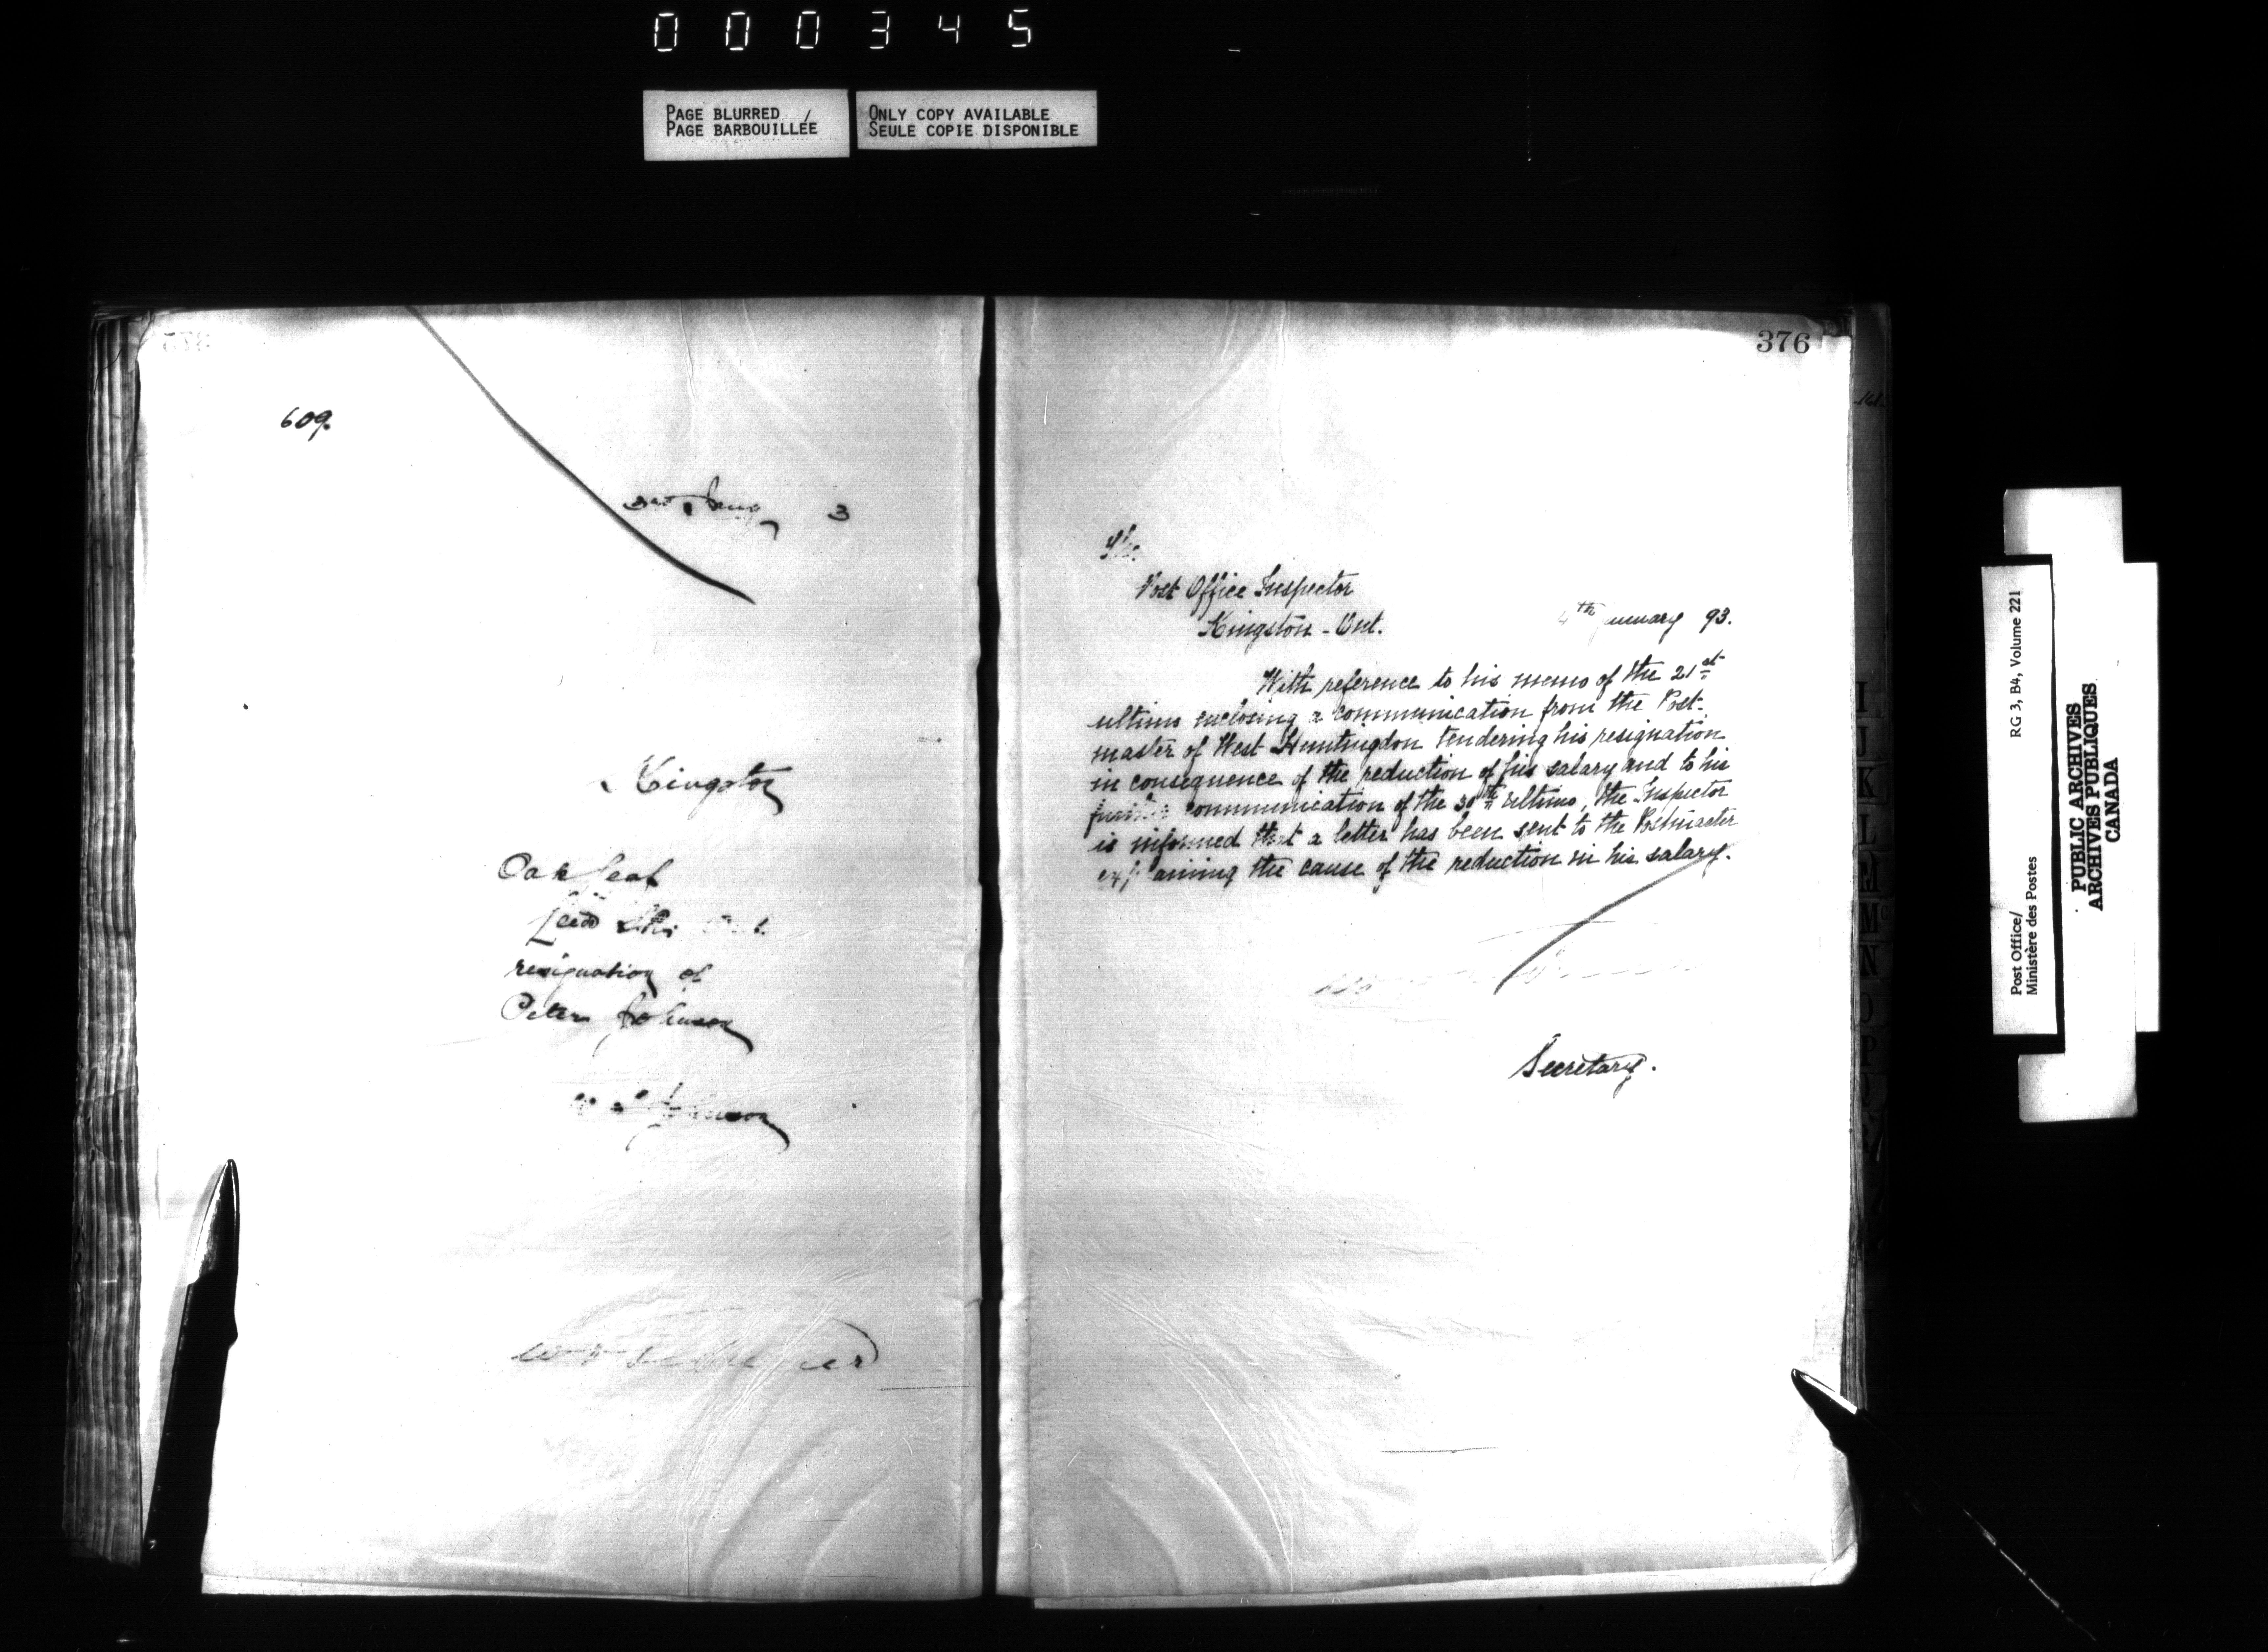 000345
PAGE BLURRED
PAGE BARBOUILLÉE
ONLY COPY AVAILABLE
SEULE COPIE DISPONIBLE
609.
3rd Jany 3
Kingston
Oak Leaf
Leeds
resignation of
Peter Johnson
Johnson
376
The
Post Office Inspector
Kingston - Ont.
4th January 93.
With reference to his memo of the 21st
ultimo enclosing a communication from the Post-
master of West Huntingdon tendering his resignation
in consequence of the reduction of his salary and to his
further communication of the 30th ultimo, the Inspector
is informed that a letter has been sent to the Postmaster
explaining the cause of the reduction in his salary.
Secretary.
I
J
K
L
M
Mc
N
O
P
Post Office/
Ministère des Postes
RG 3, B4, Volume 221
PUBLIC ARCHIVES
ARCHIVES PUBLIQUES
CANADA